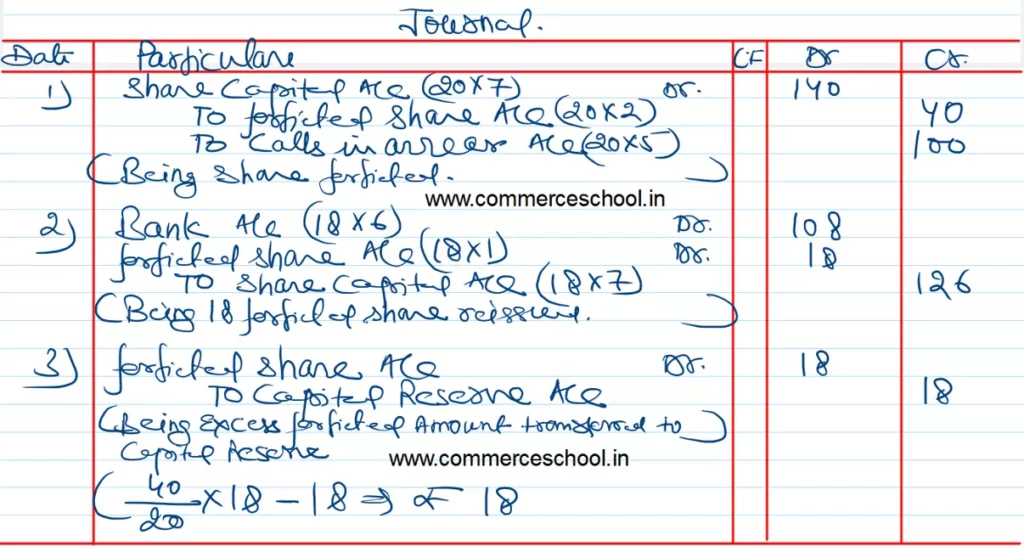 Journal.
Date Particulars CF Dr Cr.
1) Share Capital A/c (20×7) Dr. 140
To forficted Share A/c (20×2) 40
To Calls in arrear A/c (20×5) 100
(Being Share forficted.)
www.commerceschool.in
2) Bank A/c (18×6) Dr. 108
forficted share A/c (18×1) Dr. 18
To Share Capital A/c (18×7) 126
(Being 18 forficted share reissued.)
3) forficted share A/c Dr. 18
To Capital Reserve A/c 18
(Being Excess forficted Amount transferred to)
Capital Reserve
www.commerceschool.in
(40/20 × 18 – 18 ⇒ ₹ 18